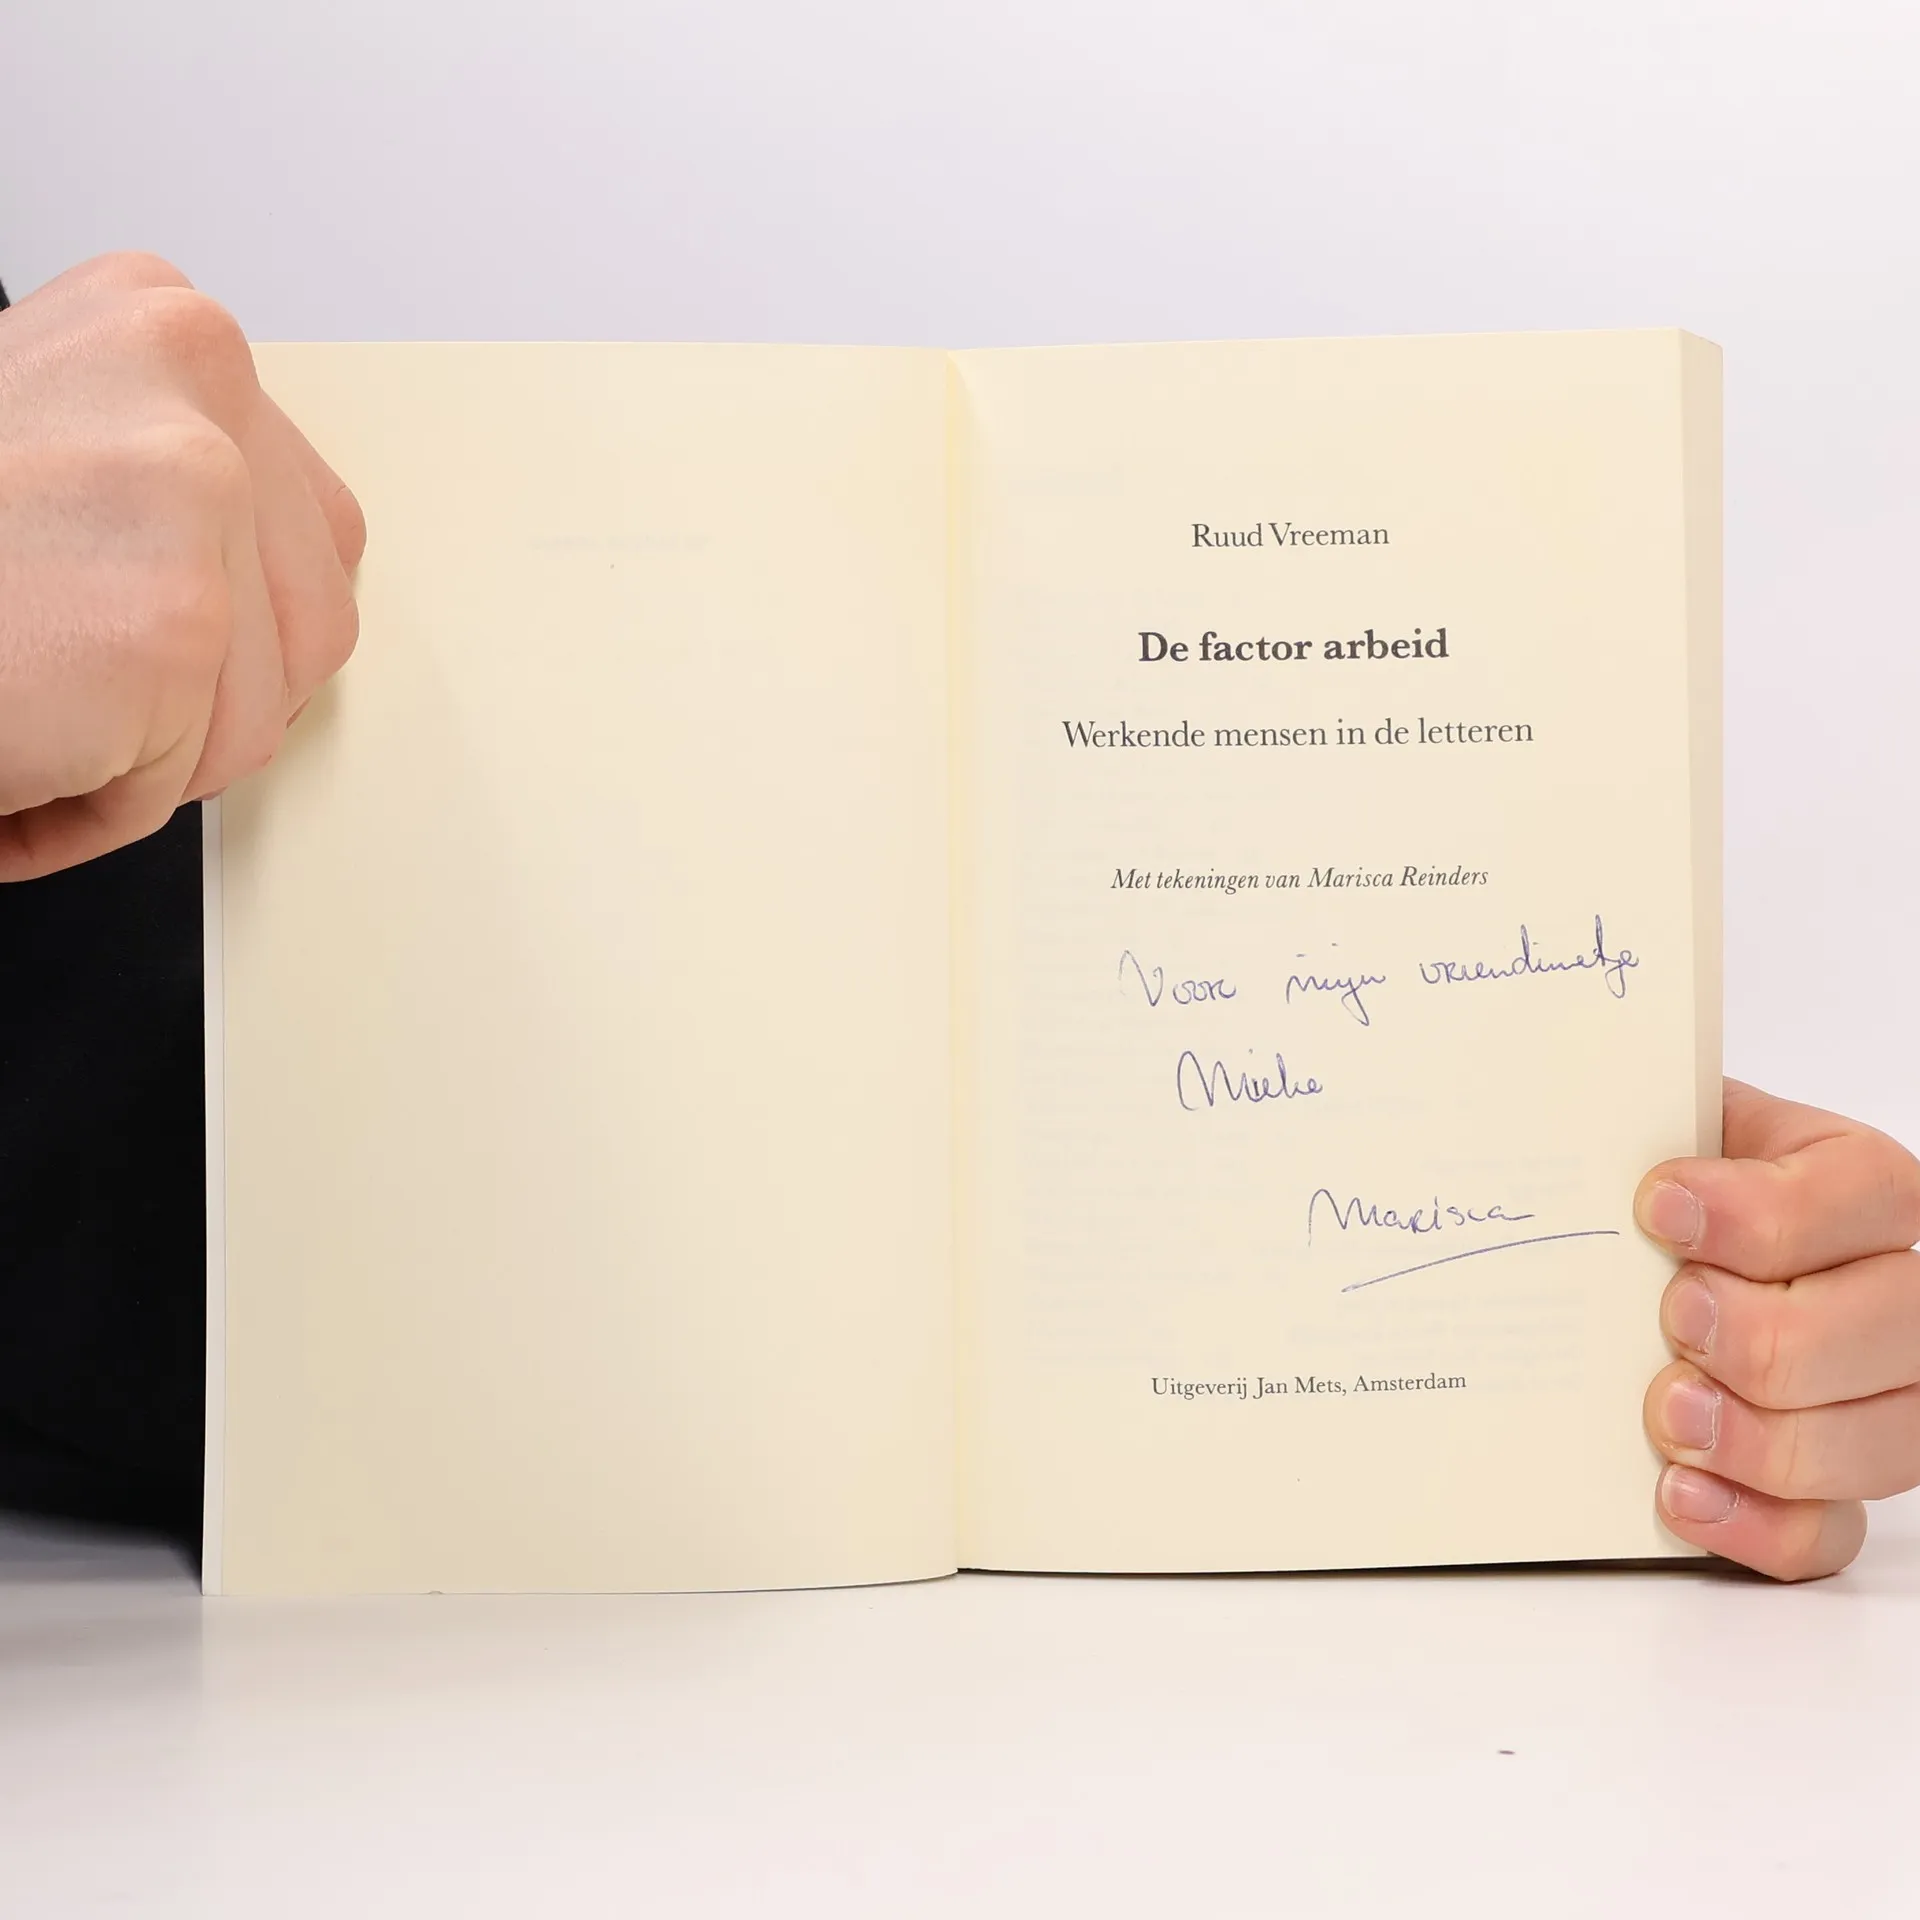 Ruud Vreeman
De factor arbeid
Werkende mensen in de letteren
Met tekeningen van Marisca Reinders
Voor mijn vriendinnetje
Mieke
Marisca
Uitgeverij Jan Mets, Amsterdam